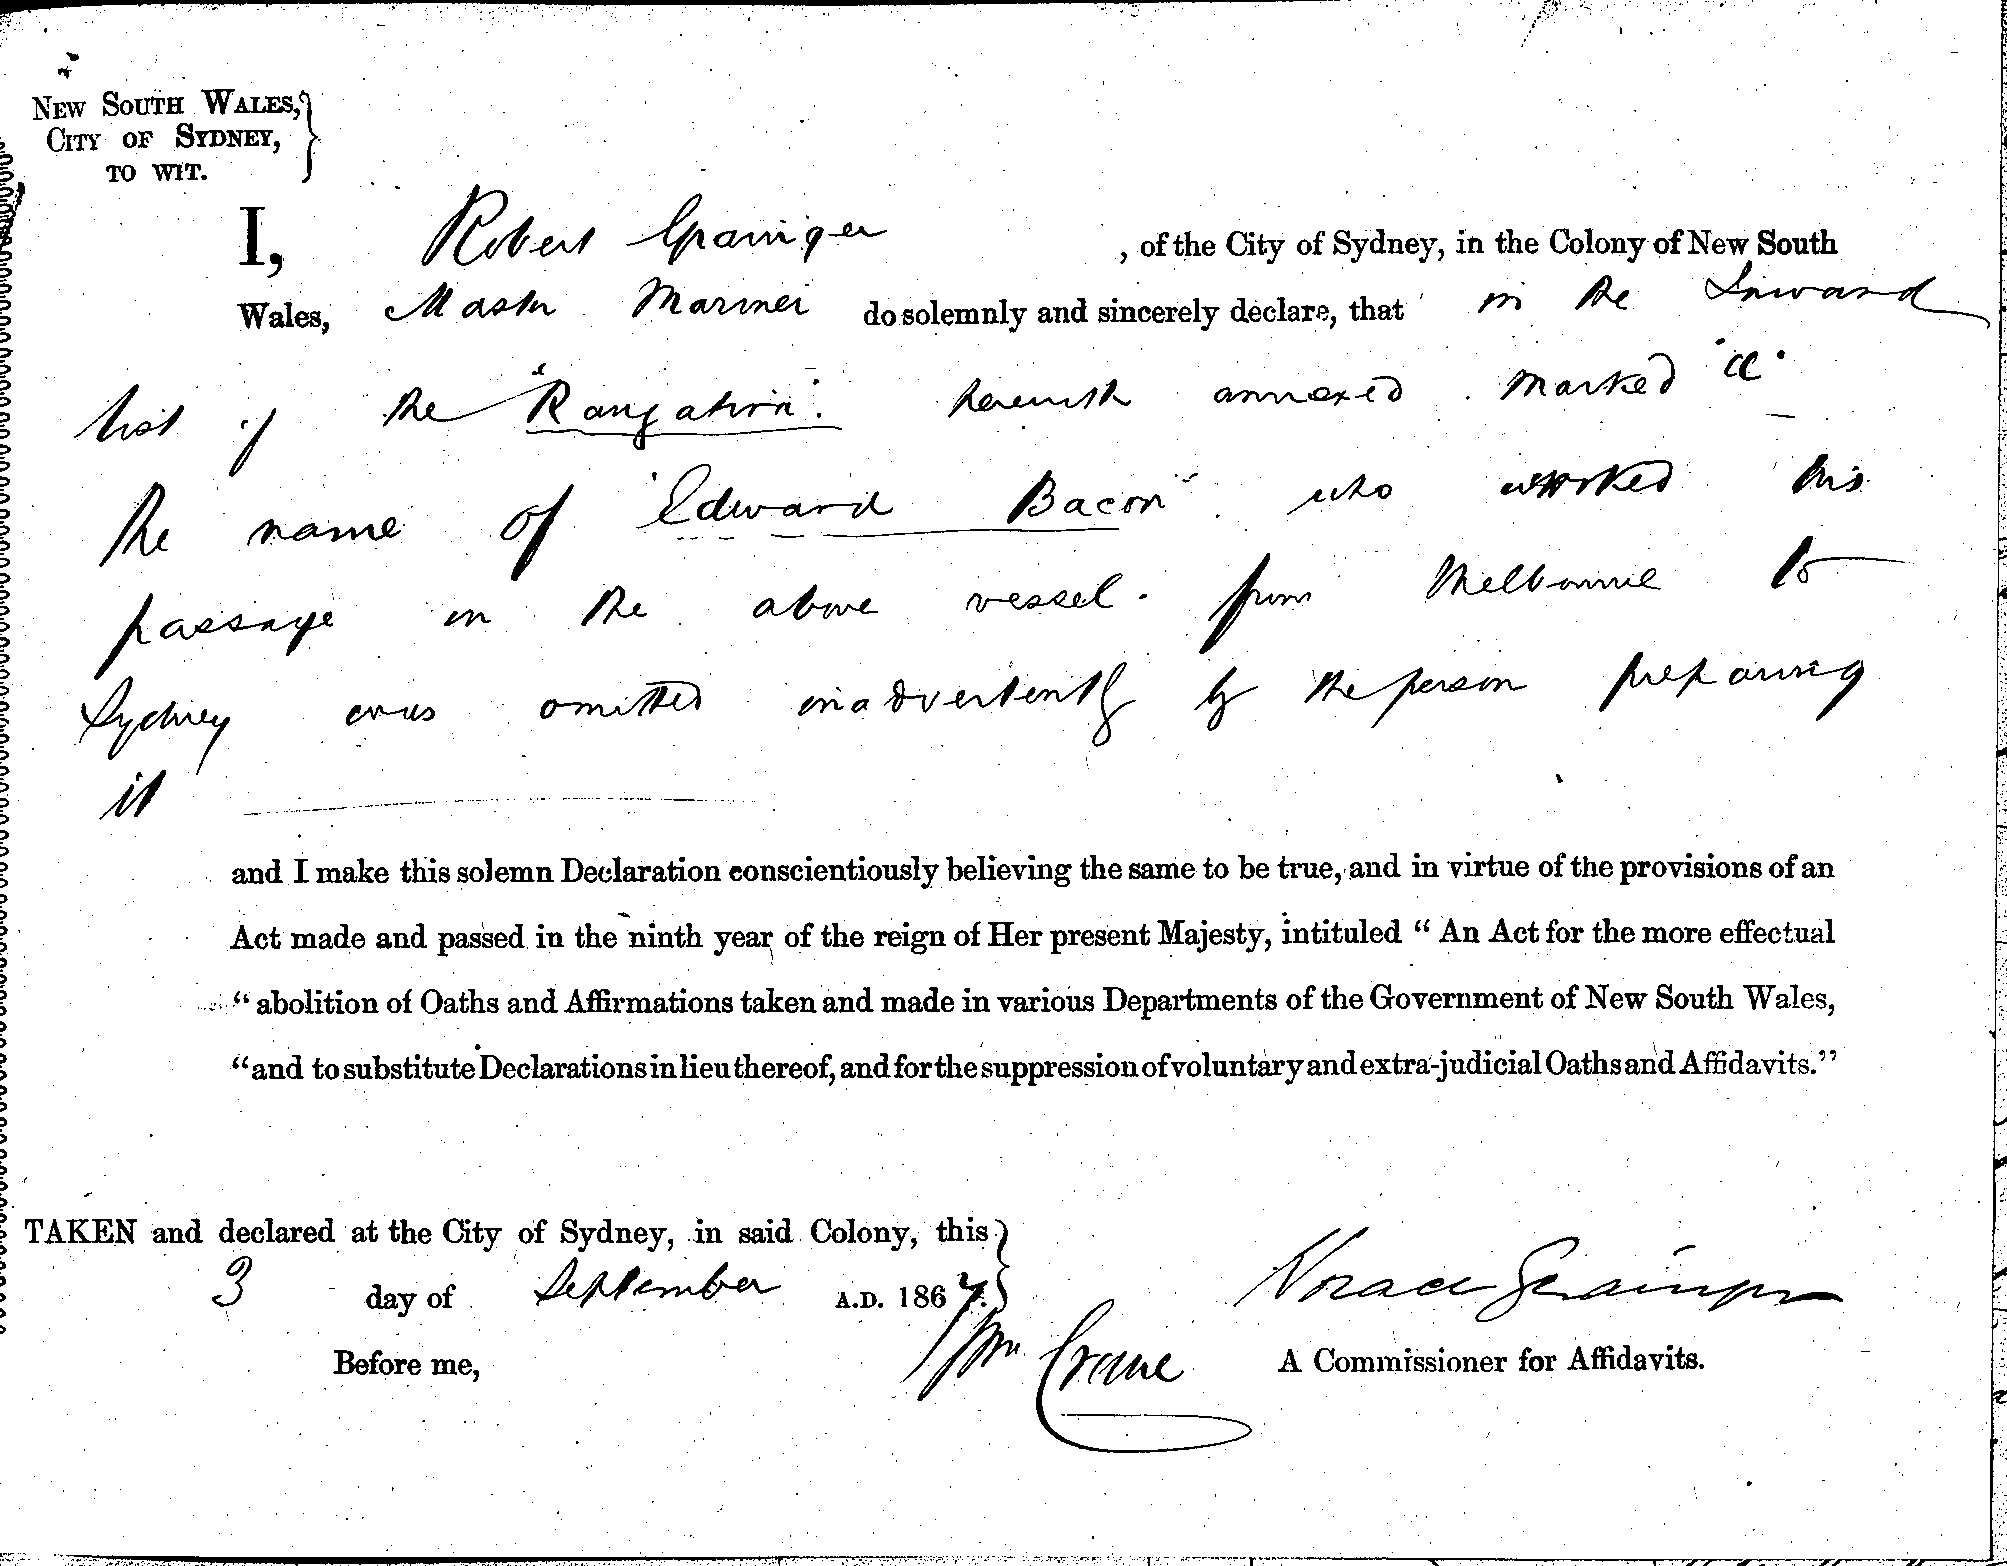 NEW SOUTH WALES,
CITY OF SYDNEY,
TO WIT.
I, Robert Grainger, of the City of Sydney, in the Colony of New South
Wales, Master Mariner do solemnly and sincerely declare, that in the Inward
list of the "Rangatira". herewith annexed marked "a"
the name of "Edward Bacon" who worked his
passage in the above vessel. from Melbourne to
Sydney was omitted inadvertently by the person preparing
it
and I make this solemn Declaration conscientiously believing the same to be true, and in virtue of the provisions of an
Act made and passed in the ninth year of the reign of Her present Majesty, intituled “ An Act for the more effectual
“ abolition of Oaths and Affirmations taken and made in various Departments of the Government of New South Wales,
“and to substitute Declarations in lieu thereof, and for the suppression of voluntary and extra-judicial Oaths and Affidavits.”
TAKEN and declared at the City of Sydney, in said Colony, this
3 day of September A.D. 1867.
Before me, Wm Crane
Grainger
A Commissioner for Affidavits.